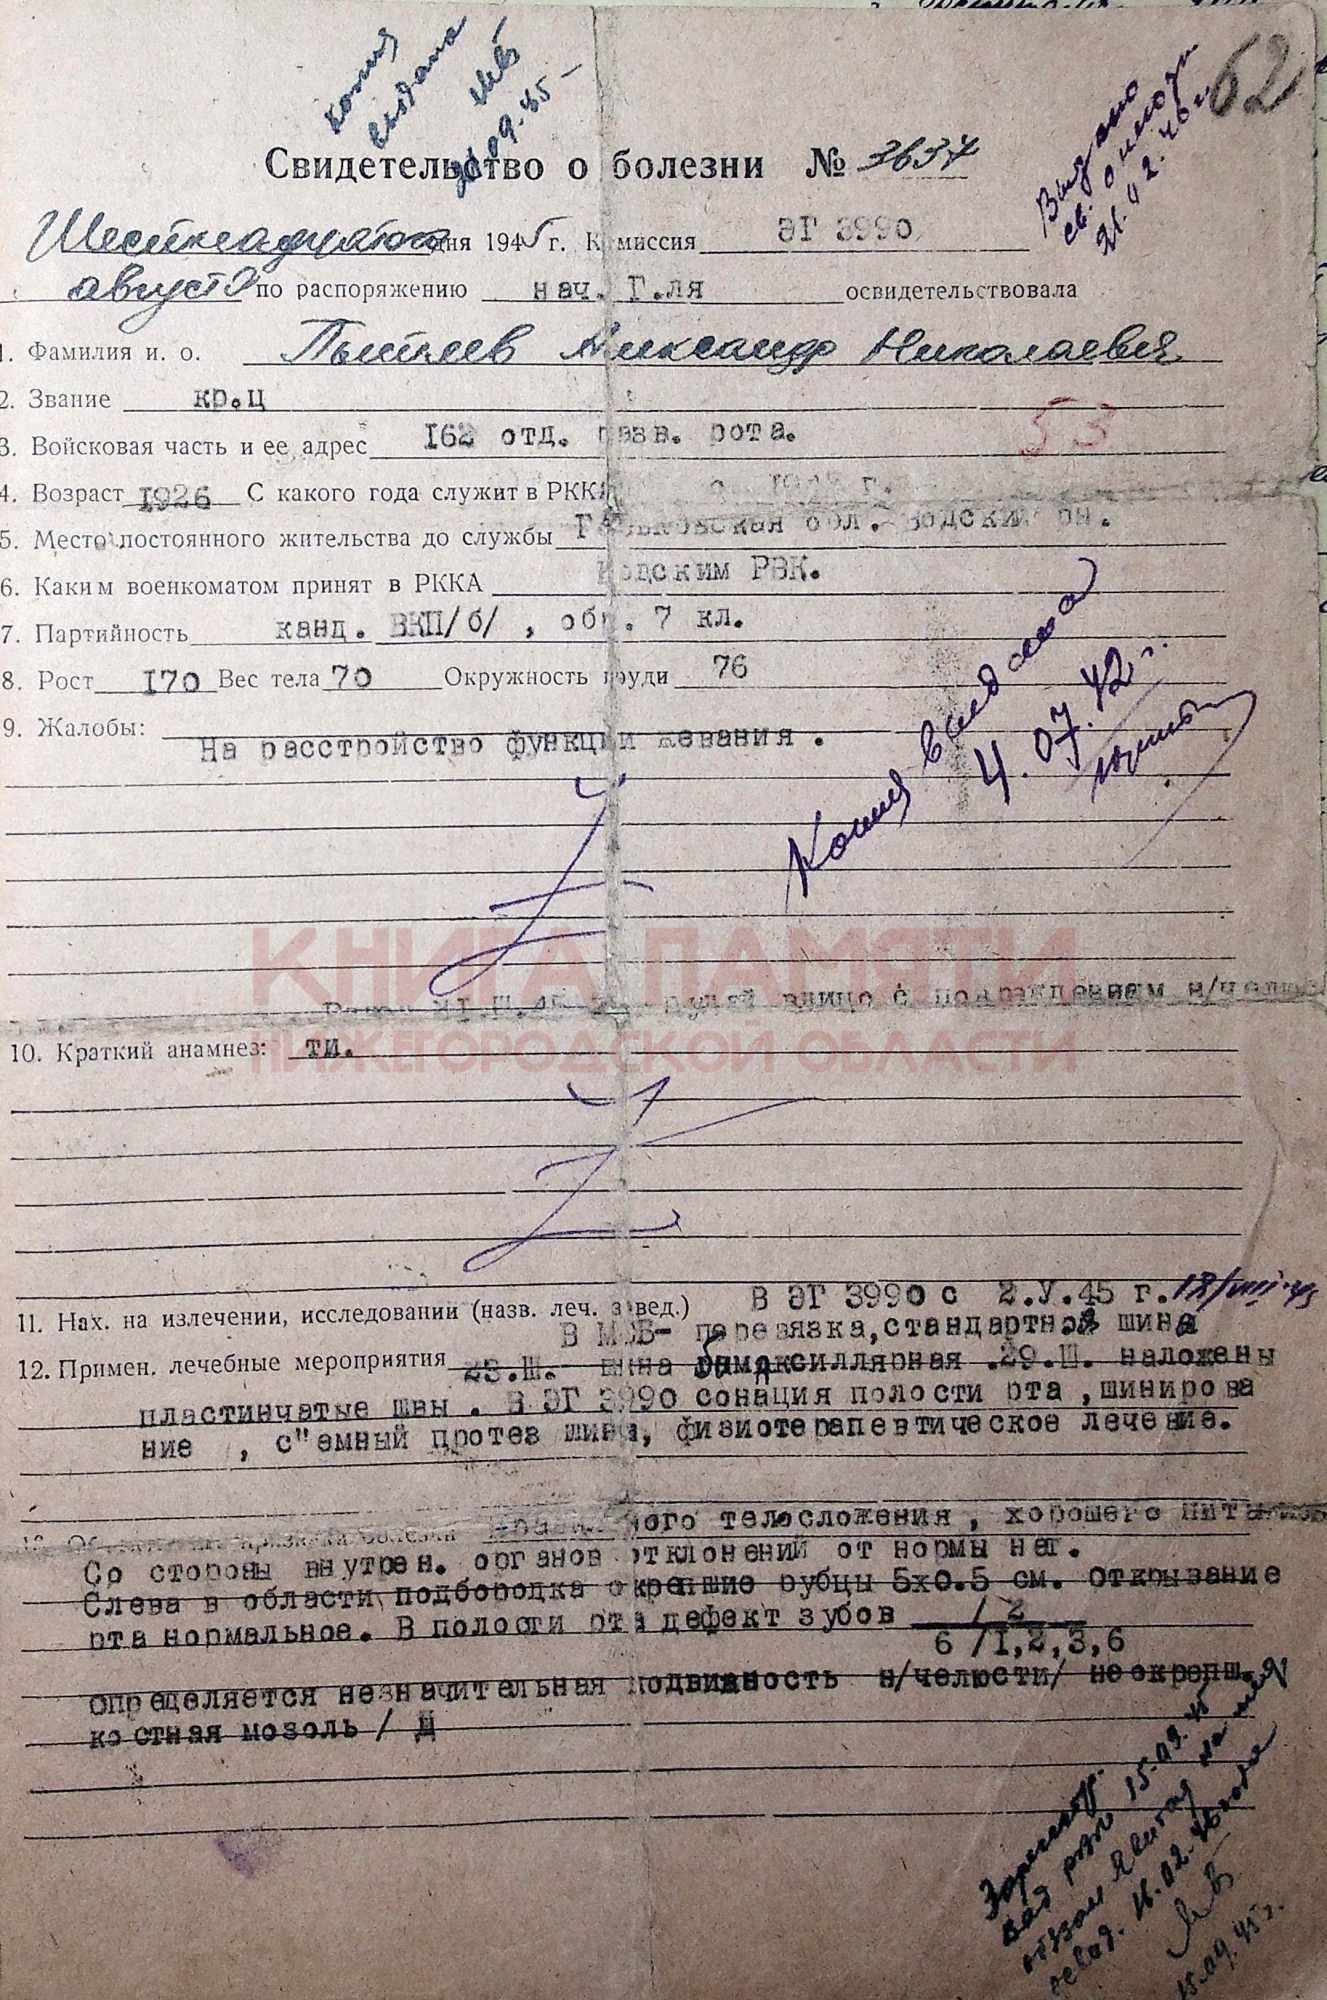 62
копия
выдана
09.45
Выдано
Свидетельство о болезни № 3637
Шестнадцатого дня 1945 г. Комиссия ЭГ 3990
августа по распоряжению нач. Г.ля освидетельствовала
1. Фамилия и. о. Пыпляев Александр Николаевич
2. Звание кр.ц
53
3. Войсковая часть и ее адрес 162 отд. разв. рота.
4. Возраст 1926 С какого года служит в РККА г.
5. Место постоянного жительства до службы Горьковская обл. Водский рн.
6. Каким военкоматом принят в РККА Водским РВК.
7. Партийность канд. ВКП/б/ , обр. 7 кл.
8. Рост 170 Вес тела 70 Окружность груди 76
9. Жалобы:
На расстройство функции жевания .
Копия выдана
4.07.42 г.
КНИГА ПАМЯТИ
НИЖЕГОРОДСКОЙ ОБЛАСТИ
влицо с повреждением н/челюс
10. Краткий анамнез: ти.
11. Нах. на излечении, исследовании (назв. леч. завед.) В ЭГ 3990 с 2.У.45 г. 18/VIII-45
В МСБ- перевязка,стандартная шина
12. Примен. лечебные мероприятия 23.Ш.- шина бимаксиллярная .29.Ш. наложены
пластинчатые швы . В ЭГ 3990 сонация полости рта ,шинирова
ние , с"емный протез шина, физиотерапевтическое лечение.
13. признаки болезни ного телосложения , хорошего
Со стороны внутрен. органов отклонений от нормы нет.
Слева в области подбородка окрепшие рубцы 5х0.5 см. Открывание
рта нормальное. В полости рта дефект зубов / 2
6 /1,2,3,6
Определяется незначительная подвижность н/челюсти/ неокрепш.
костная мозоль /
15.09.45
16.02.46
15.09.45 г.